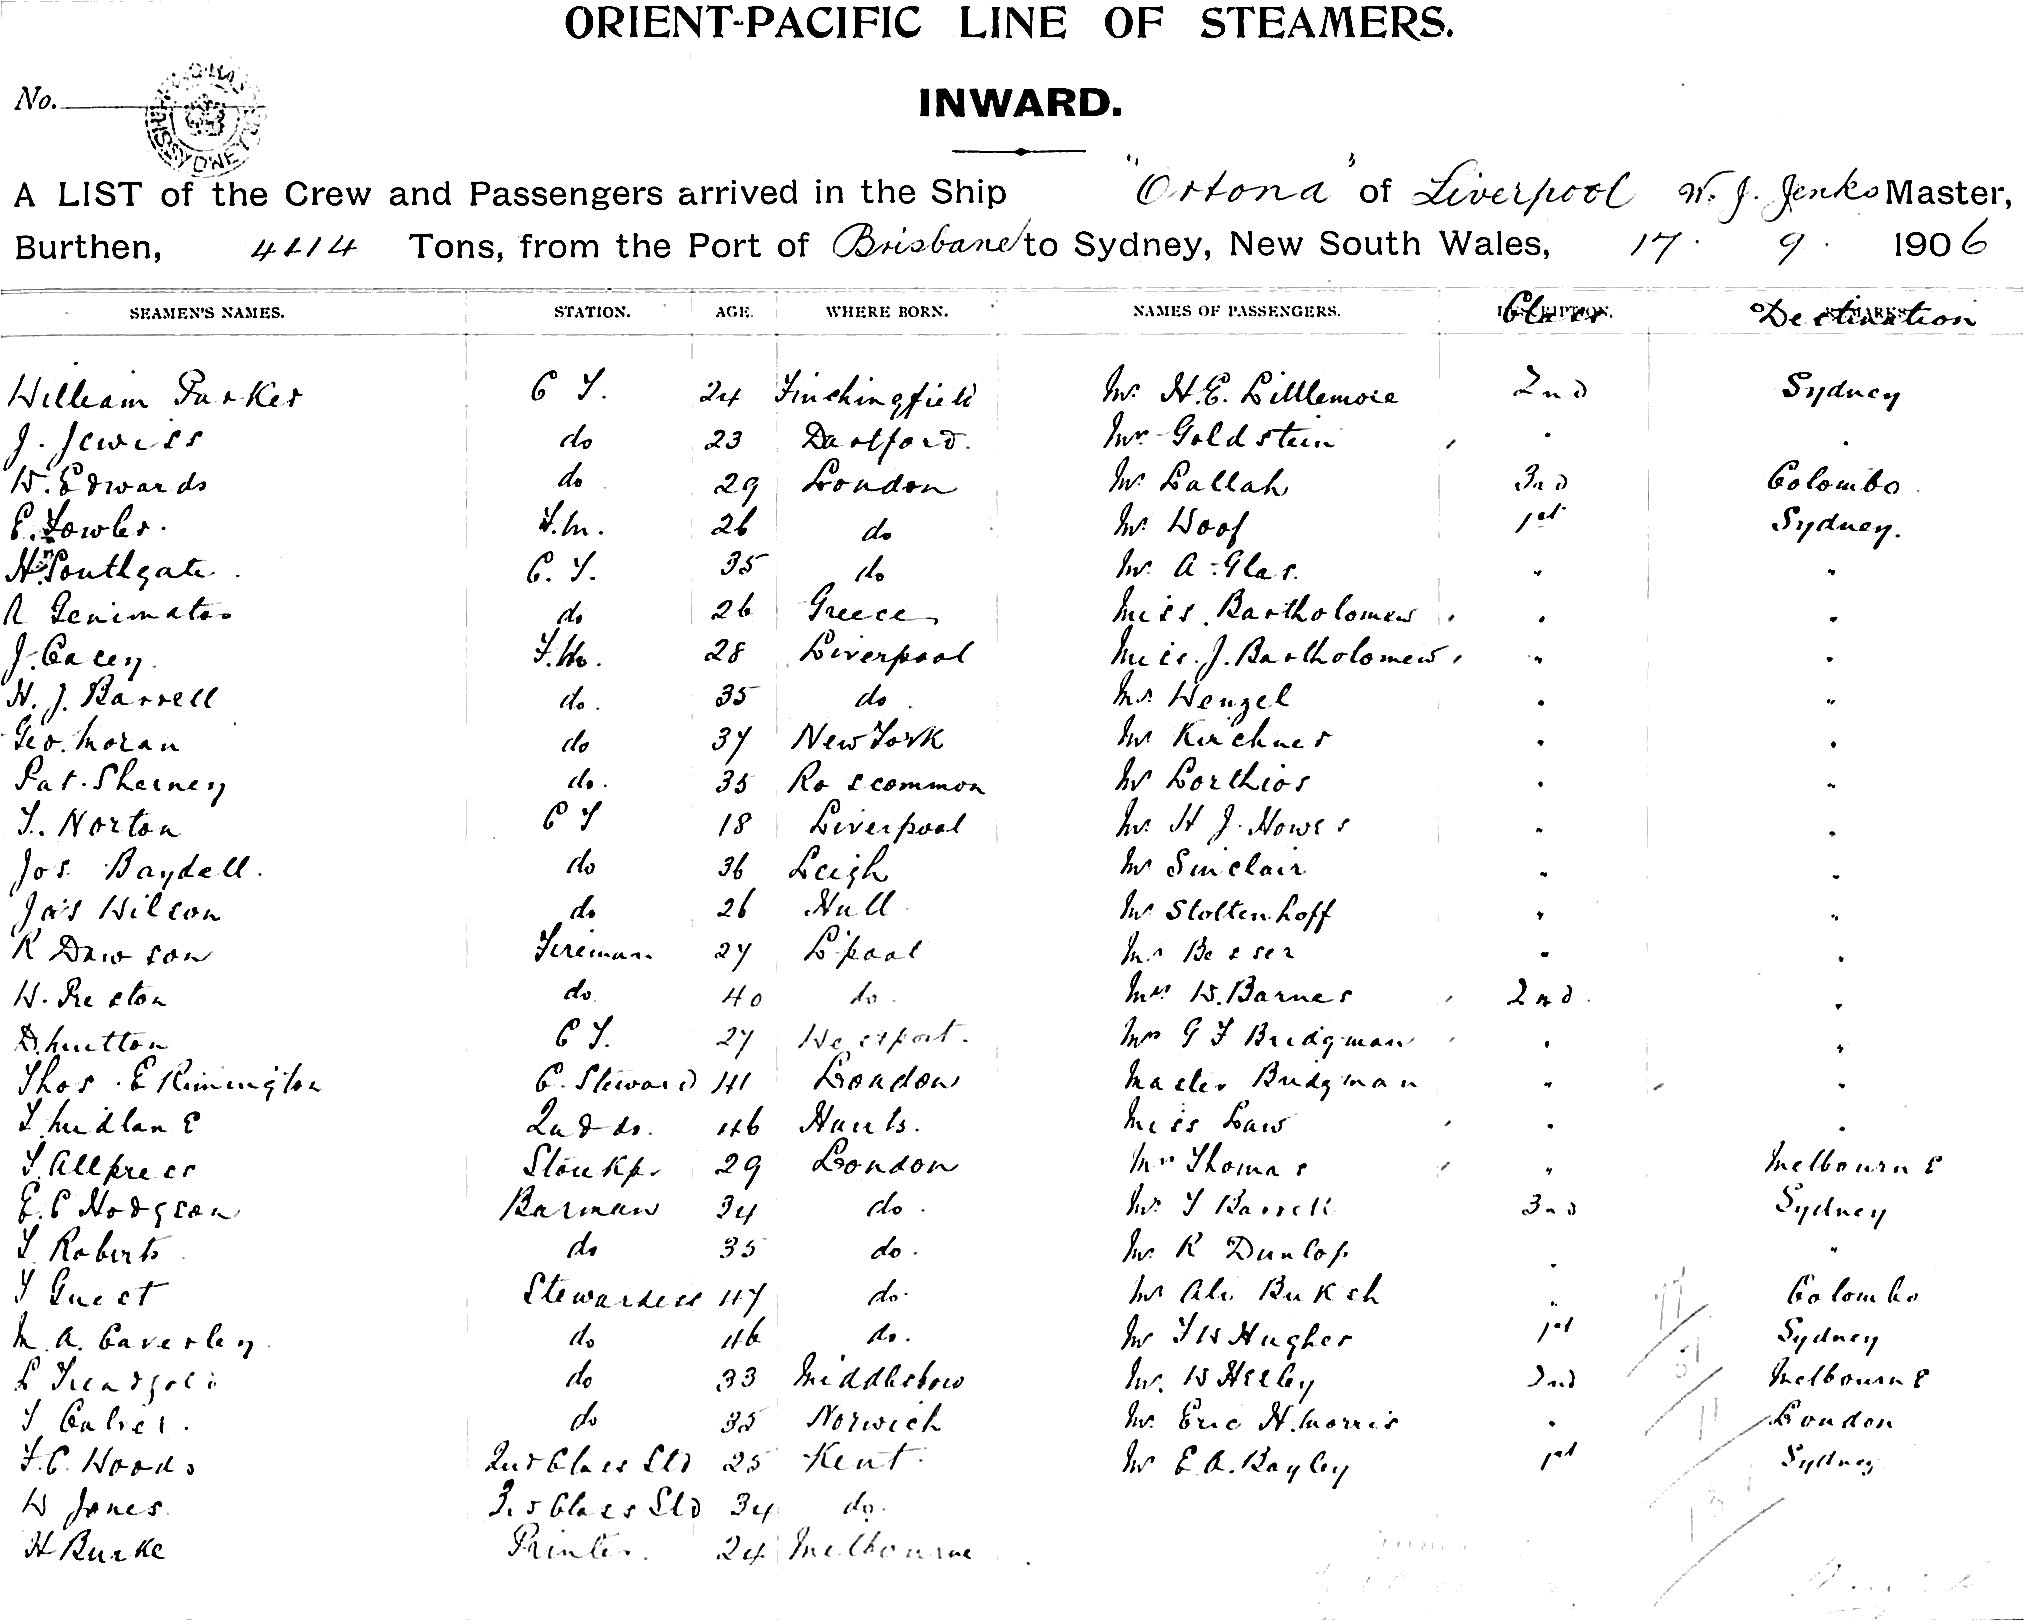 ORIENT-PACIFIC LINE OF STEAMERS.
No.
SYDNEY
INWARD.
A LIST of the Crew and Passengers arrived in the Ship "Ortona" of Liverpool W. J. Jenks Master,
Burthen, 4414 Tons, from the Port of Brisbane to Sydney, New South Wales, 17. 9. 1906
SEAMEN'S NAMES. STATION. AGE. WHERE BORN. NAMES OF PASSENGERS. Class Destination
William Parker C T. 24 Finchingfield Mr H.E. Littlemore 2nd Sydney
J. Jewiss do 23 Dartford. Mrs Goldstein " "
W. Edwards do 29 London Mr Lallah 3rd Colombo
E. Fowler. F.M. 26 do Mr Woof 1st Sydney.
Southgate C. T. 35 do Mr A. Glas. " "
do 26 Greece Miss Bartholomew " "
J. Casey. F.M. 28 Liverpool Miss. J. Bartholomew " "
H. J. Barrell do. 35 do Mr Wenzel " "
Geo. Moran do 37 New York Mr Kirchner " "
Pat. Sherney do. 35 Roscommon Mr Lorthios " "
T. Norton C T 18 Liverpool Mr H J. Howes " "
Jos. Baydell. do 36 Leigh Mr Sinclair " "
Jas Wilson do 26 Hull Mr Stoltenhoff " "
R Dawson Fireman 27 L'pool Mr Besser " "
W. Preston do 40 do. Mrs W. Barnes 2nd. "
D. Mutton C T. 27 Mrs G F Bridgman " "
Thos. E Rimington C. Steward 41 London Master Bridgman " "
T. Midlane 2nd do. 46 Hants. Miss Law " "
T. Allpress Storekpr 29 London Mrs Thomas " Melbourne
E. C Hodgson Barman 34 do. Mr T Barrell 3rd Sydney
T Roberts do 35 do. Mr R Dunlop " "
T Guest Stewardess 47 do. Mr Ali Buksh " Colombo
M. A. Caverley. do 46 do. Mr T W Hughes 1st Sydney
L Treadgold do 33 Middlesboro Mr. W Heeley 2nd Melbourne
T Calver. do 35 Norwich Mr. Eric H. Morris " London
F. C. Woods 2nd Class Std 25 Kent. Mr E. A. Bayley 1st Sydney
W Jones 3rd Class Std 34 do.
H Burke Printer. 24 Melbourne